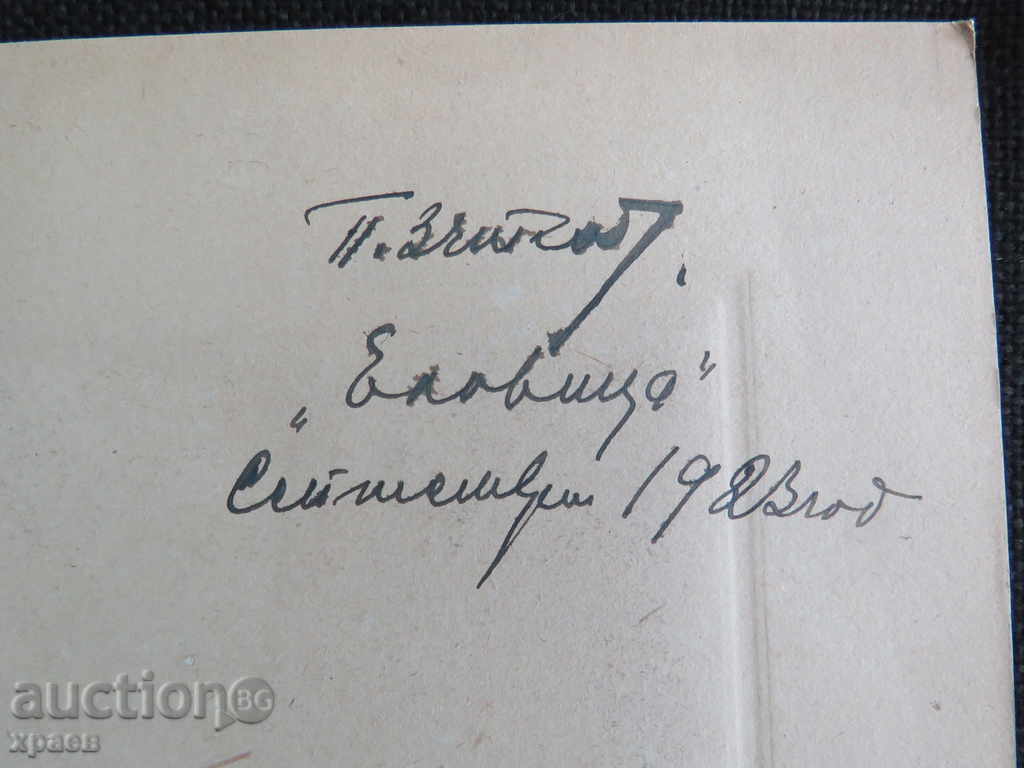 П.
„Еловица"
Септемврий 1923 год
auctionBG
храев